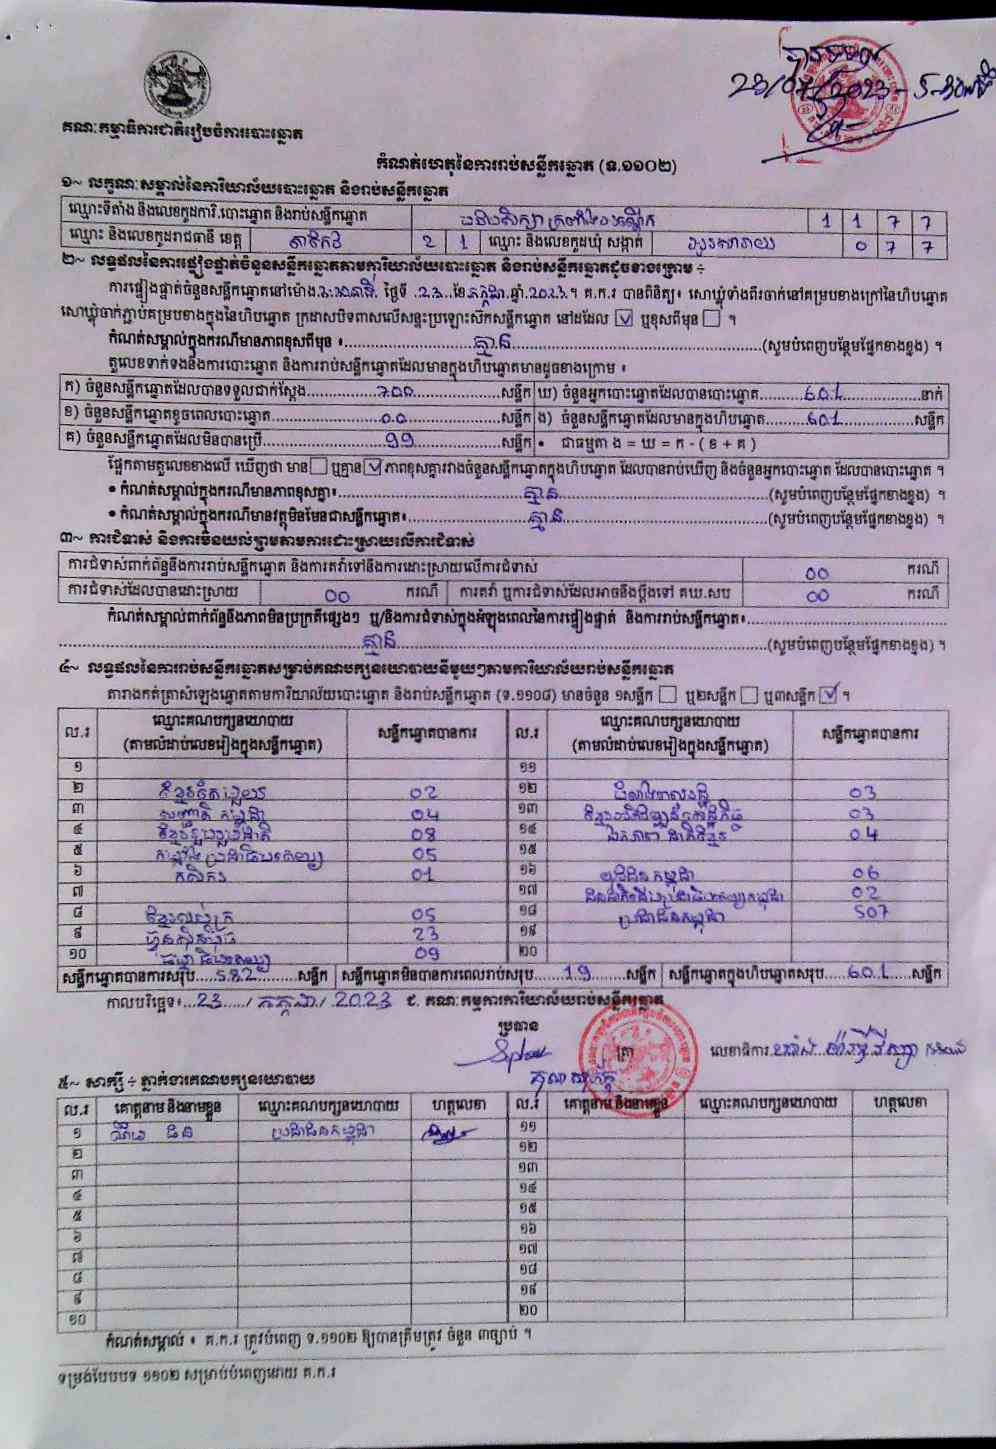 គណៈកម្មាធិការជាតិរៀបចំការបោះឆ្នោត
កំណត់ហេតុនៃការរាប់សន្លឹកឆ្នោត (ទ.១១០២)
១~ លក្ខណៈសម្គាល់នៃការិយាល័យបោះឆ្នោត និងរាប់សន្លឹកឆ្នោត
ឈ្មោះទីតាំង និងលេខកូដការិ.បោះឆ្នោត និងរាប់សន្លឹកឆ្នោត 1 1 7 7
ឈ្មោះ និងលេខកូដរាជធានី ខេត្ត តាកែវ 2 1 ឈ្មោះ និងលេខកូដឃុំ សង្កាត់ 0 7 7
២~ លទ្ធផលនៃការផ្ទៀងផ្ទាត់ចំនួនសន្លឹកឆ្នោតតាមការិយាល័យបោះឆ្នោត និងរាប់សន្លឹកឆ្នោតដូចខាងក្រោម ÷
ការផ្ទៀងផ្ទាត់ចំនួនសន្លឹកឆ្នោតនៅម៉ោង ថ្ងៃទី 23 ខែ កក្កដា ឆ្នាំ 2023 ។ គ.ក.រ បានពិនិត្យ៖ សោឃ្លុំទាំងពីរចាក់នៅគម្របខាងក្រៅនៃហិបឆ្នោត
សោឃ្លុំចាក់ភ្ជាប់គម្របខាងក្នុងនៃហិបឆ្នោត ក្រដាសបិទពាសលើសន្ទះប្រឡោះសៀកសន្លឹកឆ្នោត នៅដដែល ☑ ឬខុសពីមុន ☐ ។
កំណត់សម្គាល់ក្នុងករណីមានភាពខុសពីមុន ៖ គ្មាន (សូមបំពេញបន្ថែមផ្នែកខាងខ្នង) ។
តួលេខទាក់ទងនឹងការបោះឆ្នោត និងការរាប់សន្លឹកឆ្នោតដែលមានក្នុងហិបឆ្នោតមានដូចខាងក្រោម ៖
ក) ចំនួនសន្លឹកឆ្នោតដែលបានទទួលជាក់ស្តែង 700 សន្លឹក ឃ) ចំនួនអ្នកបោះឆ្នោតដែលបានបោះឆ្នោត 601 នាក់
ខ) ចំនួនសន្លឹកឆ្នោតខូចពេលបោះឆ្នោត 00 សន្លឹក ង) ចំនួនសន្លឹកឆ្នោតដែលមានក្នុងហិបឆ្នោត 601 សន្លឹក
គ) ចំនួនសន្លឹកឆ្នោតដែលមិនបានប្រើ 99 សន្លឹក • ជាធម្មតា ង = ឃ = ក - ( ខ + គ )
ផ្អែកតាមតួលេខខាងលើ ឃើញថា មាន ☐ ឬគ្មាន ☑ ភាពខុសគ្នារវាងចំនួនសន្លឹកឆ្នោតក្នុងហិបឆ្នោត ដែលបានរាប់ឃើញ និងចំនួនអ្នកបោះឆ្នោត ដែលបានបោះឆ្នោត ។
• កំណត់សម្គាល់ក្នុងករណីមានភាពខុសគ្នា៖ គ្មាន (សូមបំពេញបន្ថែមផ្នែកខាងខ្នង) ។
• កំណត់សម្គាល់ក្នុងករណីមានវត្ថុមិនមែនជាសន្លឹកឆ្នោត៖ គ្មាន (សូមបំពេញបន្ថែមផ្នែកខាងខ្នង) ។
៣~ ការជំទាស់ និងការមិនយល់ព្រមតាមការដោះស្រាយលើការជំទាស់
ការជំទាស់ពាក់ព័ន្ធនឹងការរាប់សន្លឹកឆ្នោត និងការតវ៉ាទៅនឹងការដោះស្រាយលើការជំទាស់ 00 ករណី
ការជំទាស់ដែលបានដោះស្រាយ 00 ករណី ការតវ៉ា ឬការជំទាស់ដែលអាចនឹងប្តឹងទៅ គឃ.សប 00 ករណី
កំណត់សម្គាល់ពាក់ព័ន្ធនឹងភាពមិនប្រក្រតីផ្សេងៗ ឬ/និងការជំទាស់ក្នុងអំឡុងពេលនៃការផ្ទៀងផ្ទាត់ និងការរាប់សន្លឹកឆ្នោត៖
គ្មាន (សូមបំពេញបន្ថែមផ្នែកខាងខ្នង) ។
៤~ លទ្ធផលនៃការរាប់សន្លឹកឆ្នោតសម្រាប់គណបក្សនយោបាយនីមួយៗតាមការិយាល័យរាប់សន្លឹកឆ្នោត
តារាងកត់ត្រាសំឡេងឆ្នោតតាមការិយាល័យបោះឆ្នោត និងរាប់សន្លឹកឆ្នោត (ទ.១១០៨) មានចំនួន ១សន្លឹក ☐ ឬ២សន្លឹក ☐ ឬ៣សន្លឹក ☑ ។
ល.រ ឈ្មោះគណបក្សនយោបាយ (តាមលំដាប់លេខរៀងក្នុងសន្លឹកឆ្នោត) សន្លឹកឆ្នោតបានការ ល.រ ឈ្មោះគណបក្សនយោបាយ (តាមលំដាប់លេខរៀងក្នុងសន្លឹកឆ្នោត) សន្លឹកឆ្នោតបានការ
១ ១១
២ 02 ១២ 03
៣ 04 ១៣ 03
៤ 08 ១៤ ឯកភាពជាតិខ្មែរ 04
៥ 05 ១៥
៦ កសិករ 01 ១៦ យុវជនកម្ពុជា 06
៧ ១៧ 02
៨ 05 ១៨ ប្រជាជនកម្ពុជា 507
៩ ហ៊្វុនស៊ិនប៉ិច 23 ១៩
១០ 09 ២០
សន្លឹកឆ្នោតបានការសរុប 582 សន្លឹក សន្លឹកឆ្នោតមិនបានការពេលរាប់សរុប 19 សន្លឹក សន្លឹកឆ្នោតក្នុងហិបឆ្នោតសរុប 601 សន្លឹក
កាលបរិច្ឆេទ៖ 23 / កក្កដា / 2023 ជ. គណៈកម្មការការិយាល័យរាប់សន្លឹកឆ្នោត
ប្រធាន
ត្រា លេខាធិការ
៥~ សាក្សី ÷ ភ្នាក់ងារគណបក្សនយោបាយ
ល.រ គោត្តនាម និងនាមខ្លួន ឈ្មោះគណបក្សនយោបាយ ហត្ថលេខា ល.រ គោត្តនាម និងនាមខ្លួន ឈ្មោះគណបក្សនយោបាយ ហត្ថលេខា
១ ប្រជាជនកម្ពុជា ១១
២ ១២
៣ ១៣
៤ ១៤
៥ ១៥
៦ ១៦
៧ ១៧
៨ ១៨
៩ ១៩
១០ ២០
កំណត់សម្គាល់ ៖ គ.ក.រ ត្រូវបំពេញ ទ.១១០២ ឱ្យបានត្រឹមត្រូវ ចំនួន ៣ច្បាប់ ។
ទម្រង់បែបបទ ១១០២ សម្រាប់បំពេញដោយ គ.ក.រ